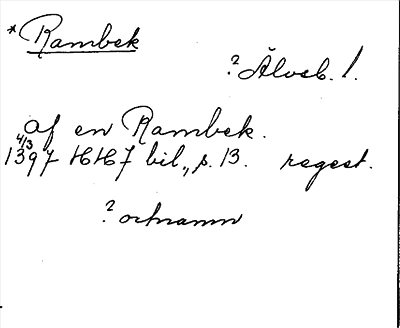 * Rambek
? Älvsb. l.
af en Rambek.
4/3
1397 HH7 bil., s. 13. regest.
? ortnamn